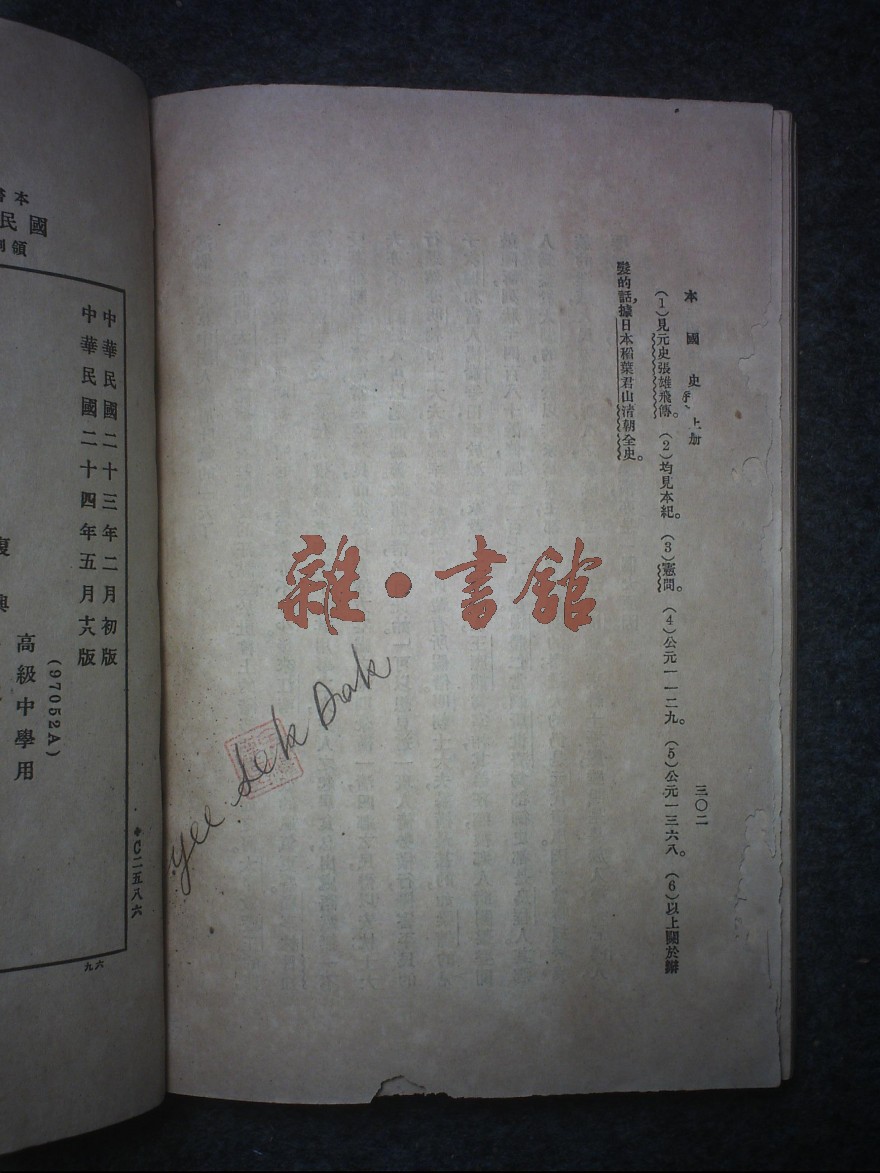 本國史 上册
三〇二
(1)見元史張雄飛傳。 (2)均見本紀。 (3)憲問。 (4)公元一一二九。 (5)公元一三六八。 (6)以上關於辮
髮的話,據日本稻葉君山清朝全史。
雜·書館
yee Sek Dak
本書
國民
領
中華民國二十三年二月初版
中華民國二十四年五月六版
(97052A)
復興
高級中學用
◆C二五八六
九六